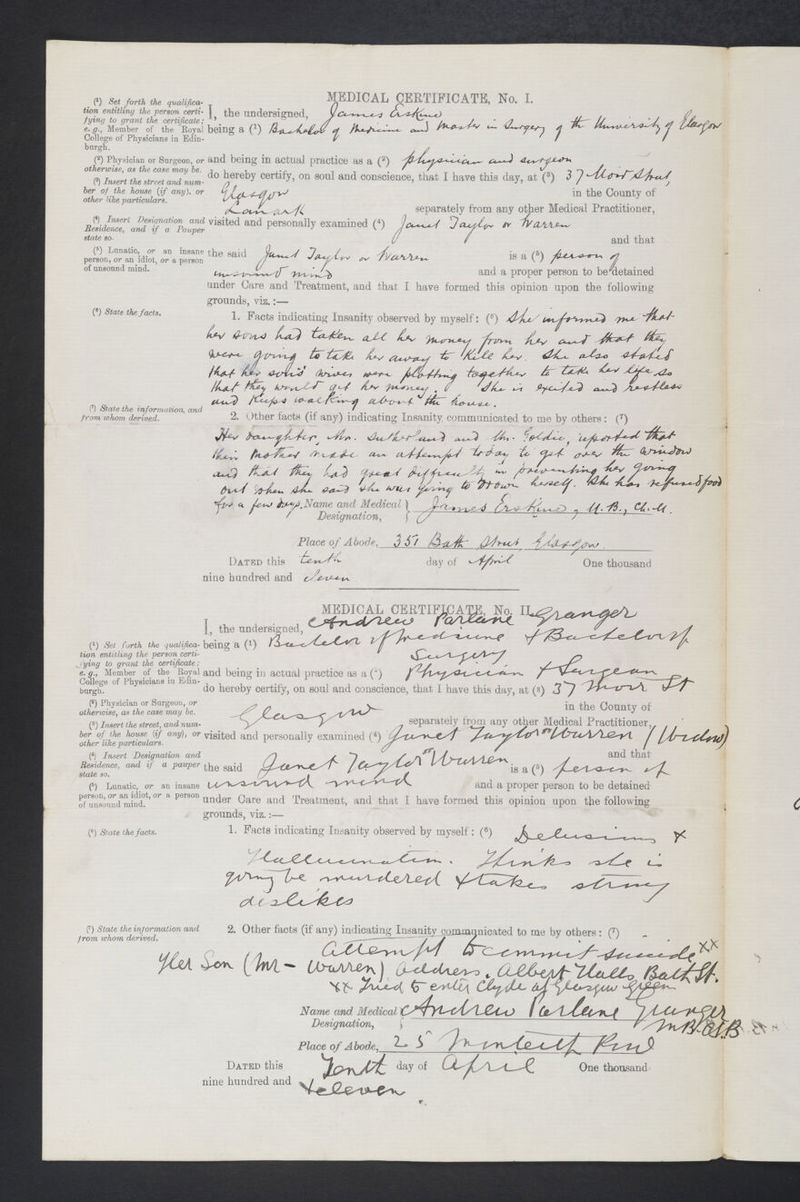 MEDICAL CERTIFICATE, No. I.
(¹) Set forth the qualifica-
tion entitling the person certi-
fying to grant the certificate;
e.g., Member of the Royal
College of Physicians in Edin-
burgh.
I, the undersigned, James Erskine
being a (¹) Bachelor of Medicine and Master in Surgery of the University of Glasgow
(²) Physician or Surgeon, or
otherwise, as the case may be.
and being in actual practice as a (²) physician and surgeon
(³) Insert the street and num-
ber of the house (if any), or
other like particulars.
do hereby certify, on soul and conscience, that I have this day, at (³) 37 Moir Street,
Glasgow in the County of
Lanark separately from any other Medical Practitioner,
(⁴) Insert Designation and
Residence, and if a Pauper
state so.
visited and personally examined (⁴) Janet Taylor or Warren
and that
(⁵) Lunatic, or an insane
person, or an idiot, or a person
of unsound mind.
the said Janet Taylor or Warren is a (⁵) person of
unsound mind and a proper person to be detained
under Care and Treatment, and that I have formed this opinion upon the following
grounds, viz.:—
(⁶) State the facts.
1. Facts indicating Insanity observed by myself: (⁶) She informed me that
her sons had taken all her money from her and that they
were going to take her away to kill her. She also stated
that her sons' wives were plotting together to take her life so
that they would get her money. She is excited and restless
and keeps walking about the house.
(⁷) State the information, and
from whom derived.
2. Other facts (if any) indicating Insanity communicated to me by others: (⁷)
Her daughter, Mrs. Sutherland and Mrs. Goldie, reported that
their mother made an attempt today to get over the window
and that they had great difficulty in preventing her going
out when she said she was going to drown herself. She has refused food
for a few days.
Name and Medical
Designation, James Erskine, M.B., Ch.M.
Place of Abode, 351 Bath Street, Glasgow.
DATED this tenth day of April One thousand
nine hundred and eleven
MEDICAL CERTIFICATE, No. II.
I, the undersigned, Andrew Parlane Granger
(¹) Set forth the qualifica-
tion entitling the person certi-
fying to grant the certificate:
e.g., Member of the Royal
College of Physicians in Edin-
burgh.
being a (¹) Bachelor of Medicine & Bachelor of
Surgery
and being in actual practice as a (²) Physician & Surgeon
do hereby certify, on soul and conscience, that I have this day, at (³) 37 Moir St
(²) Physician or Surgeon, or
otherwise, as the case may be.
Glasgow in the County of
separately from any other Medical Practitioner,
(³) Insert the street, and num-
ber of the house (if any), or
other like particulars.
visited and personally examined (⁴) Janet Taylor or Warren (Widow)
and that
(⁴) Insert Designation and
Residence, and if a pauper
state so.
the said Janet Taylor or Warren is a (⁵) person of
(⁵) Lunatic, or an insane
person, or an idiot, or a person
of unsound mind.
unsound mind and a proper person to be detained
under Care and Treatment, and that I have formed this opinion upon the following
grounds, viz.:—
(⁶) State the facts.
1. Facts indicating Insanity observed by myself: (⁶) Delusions &
Hallucination. Thinks she is
going be murdered & takes strong
dislikes
(⁷) State the information and
from whom derived.
2. Other facts (if any) indicating Insanity communicated to me by others: (⁷)
Attempt to commit suicide xx
Her Son (Mr- Warren) Address. Albert Halls, Bath St.
xx Tried to enter Clyde at Glasgow Green
Name and Medical
Designation, Andrew Parlane Granger
M.B. Ch.B
Place of Abode, 25 Monteith Row
DATED this Tenth day of April One thousand
nine hundred and eleven